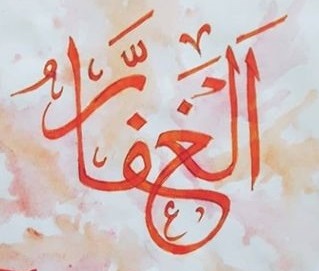 الغَفَّارُ